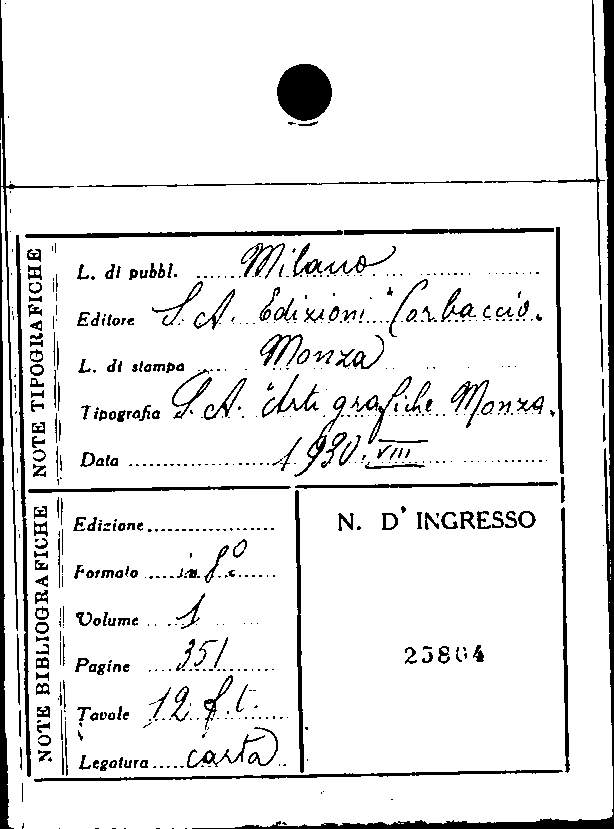 NOTE TIPOGRAFICHE
L. di pubbl. Milano
Editore S. A. Edizioni "Corbaccio.
L. di stampa Monza
Tipografia S. A. "Arti grafiche Monza.
Data 1930. VIII
NOTE BIBLIOGRAFICHE
Edizione
Formato in 8º
Volume 1
Pagine 351
Tavole 12 f. t.
Legatura carta
N. D' INGRESSO
25864